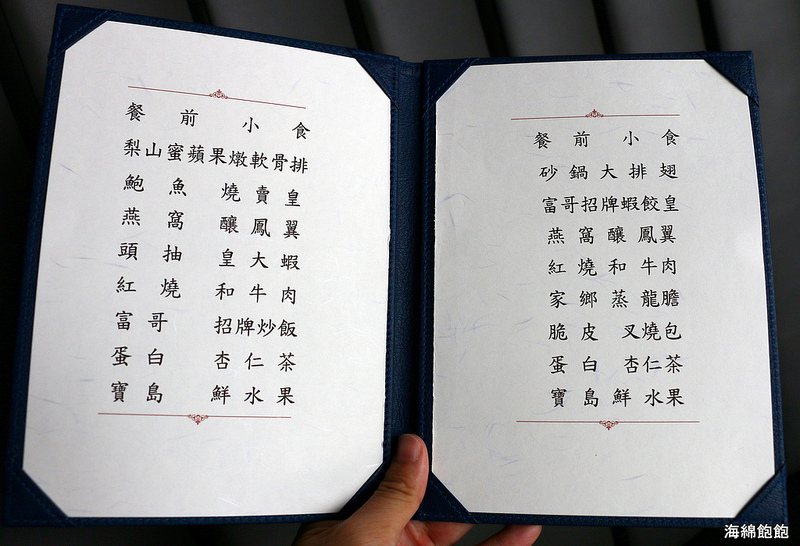 餐前小食
梨山蜜蘋果燉軟骨排
鮑魚燒賣皇
燕窩釀鳳翼
頭抽皇大蝦
紅燒和牛肉
富哥招牌炒飯
蛋白杏仁茶
寶島鮮水果
餐前小食
砂鍋大排翅
富哥招牌蝦餃皇
燕窩釀鳳翼
紅燒和牛肉
家鄉蒸龍膽
脆皮叉燒包
蛋白杏仁茶
寶島鮮水果
海綿飽飽